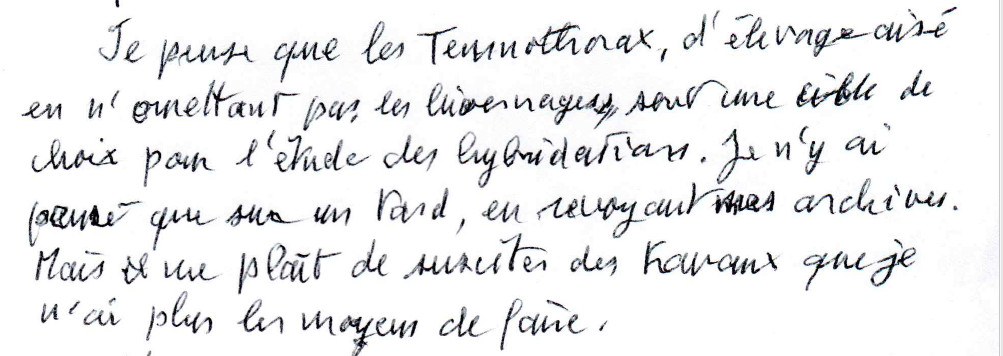 Je pense que les Temnothorax, d'élevage aisé
en n'omettant pas les hivernages, sont une cible de
choix pour l'étude des hybridations. Je n'y ai
pensé que sur un tard, en revoyant mes archives.
Mais il me plaît de susciter des travaux que je
n'ai plus les moyens de faire.